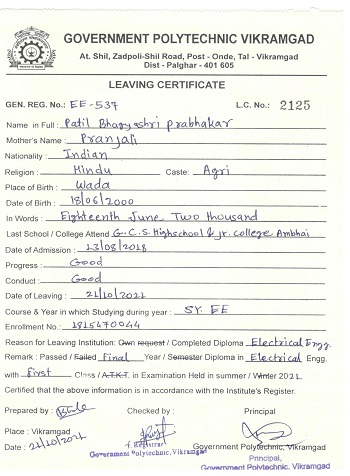 GOVERNMENT POLYTECHNIC VIKRAMGAD
At. Shil, Zadpoli-Shil Road, Post - Onde, Tal - Vikramgad
Dist - Palghar - 401 605
LEAVING CERTIFICATE
GEN. REG. No.: EE-537 L.C. No.: 2125
Name in Full : Patil Bhagyashri Prabhakar
Mother's Name : Pranjali
Nationality : Indian
Religion : Hindu Caste: Agri
Place of Birth : Wada
Date of Birth : 18/06/2000
In Words : Eighteenth June Two thousand
Last School / College Attend G.C.S. Highschool & Jr. College Ambhai
Date of Admission : 13/08/2018
Progress : Good
Conduct : Good
Date of Leaving : 21/10/2021
Course & Year in which Studying during year : SY. EE
Enrollment No. : 1815470044
Reason for Leaving Institution: Own request / Completed Diploma Electrical Engg.
Remark : Passed / Failed Final Year / Semester Diploma in Electrical Engg.
with First Class / A.T.K.T. in Examination Held in summer / Winter 2021.
Certified that the above information is in accordance with the Institute's Register.
Prepared by : Checked by : Principal
Place : Vikramgad
Date : 21/10/2021 Registrar Government Polytechnic, Vikramgad
Government Polytechnic, Vikramgad Principal,
Government Polytechnic, Vikramgad